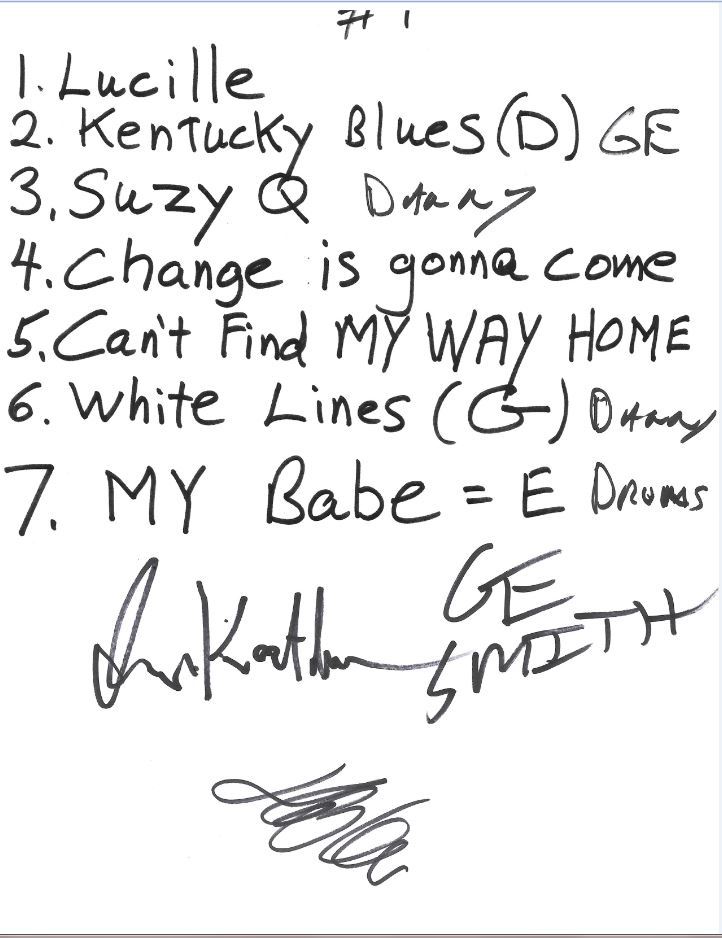 # 1
1. Lucille
2. Kentucky Blues (D) GE
3. Suzy Q Danny
4. Change is gonna come
5. Can't Find MY WAY HOME
6. White Lines (G) Danny
7. MY Babe = E DRUMS
GE
SMITH